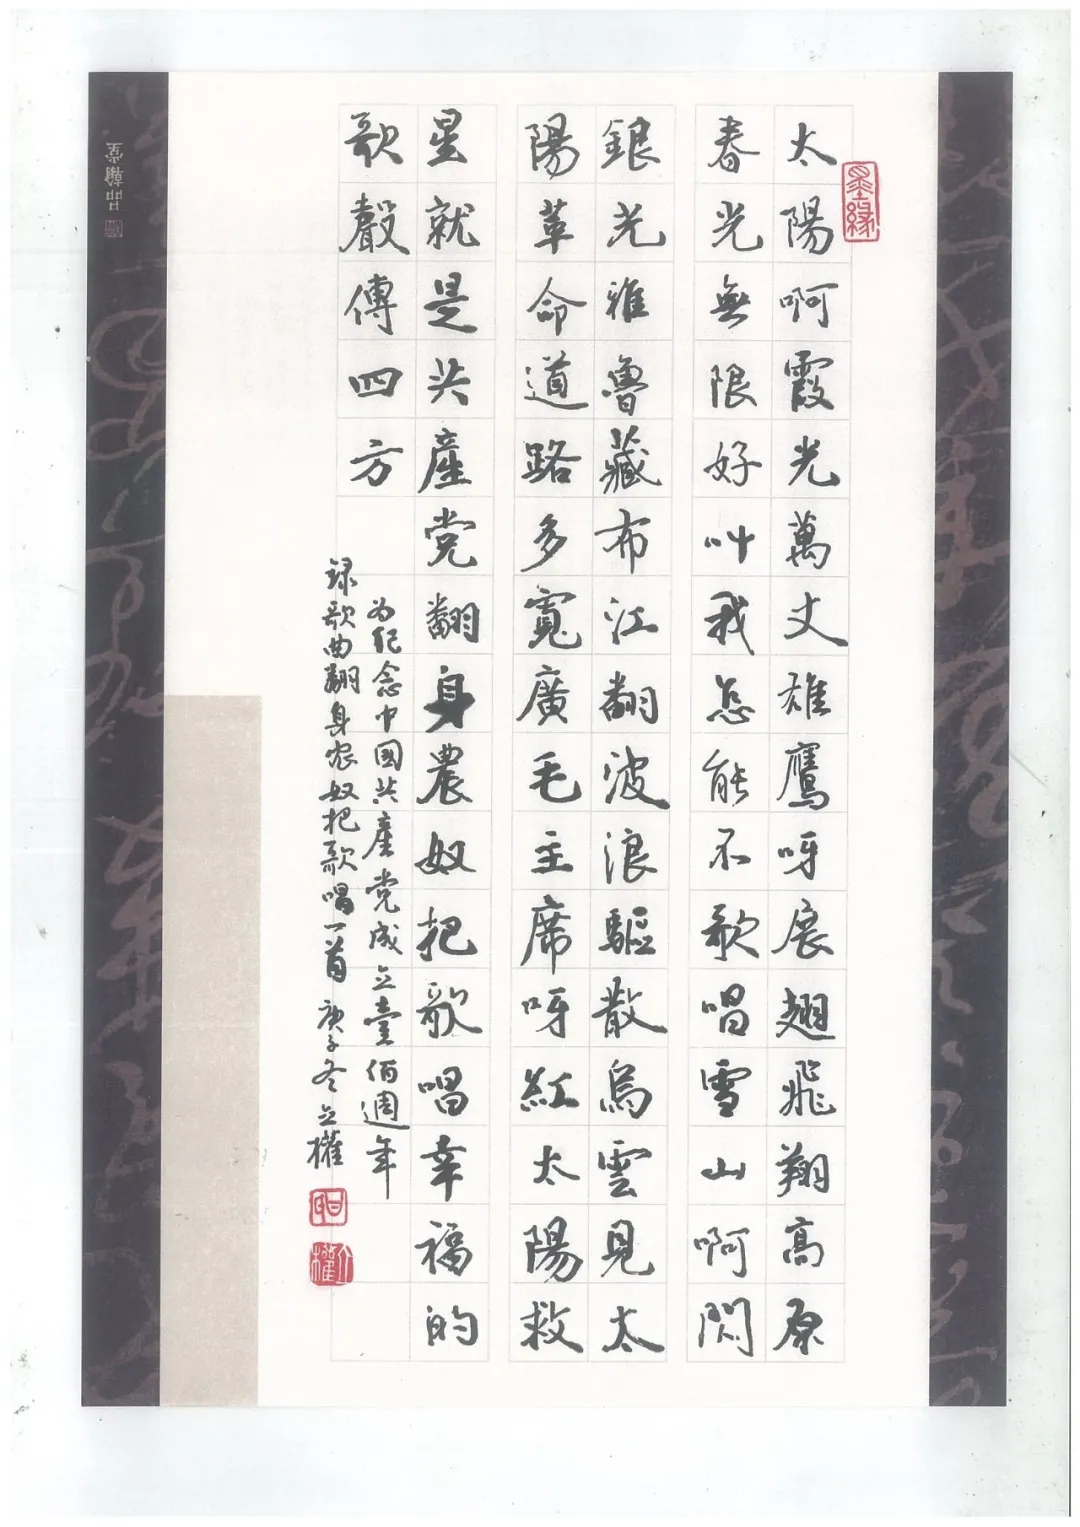 墨緣
太陽啊霞光萬丈雄鷹呀展翅飛翔高原
春光無限好叫我怎能不歌唱雪山啊閃
銀光雅魯藏布江翻波浪驅散烏雲見太
陽革命道路多寬廣毛主席呀紅太陽救
星就是共產党翻身農奴把歌唱幸福的
歌聲傳四方
为纪念中國共產党成立壹佰週年
録歌曲翻身农奴把歌唱一首庚子冬立權
品翰堂